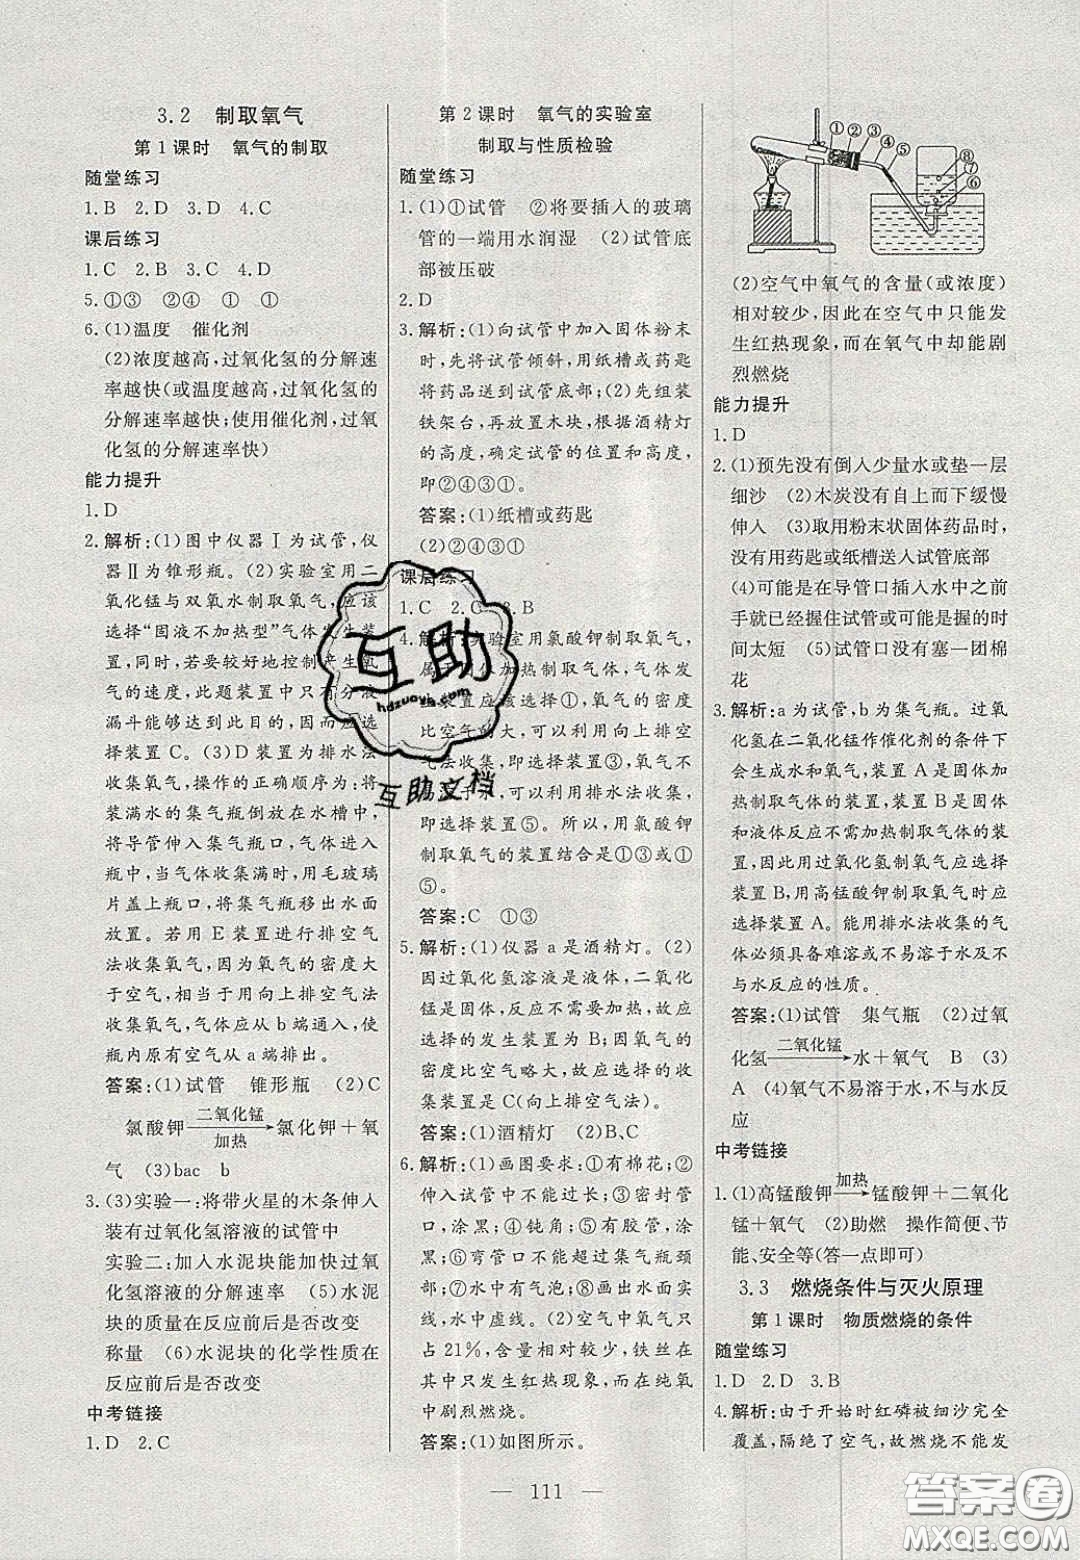 3.2 制取氧气
第1课时 氧气的制取
随堂练习
1.B 2.D 3.D 4.C
课后练习
1.C 2.C 3.C 4.D
5.①③ ②④ ① ①
6.(1)温度 催化剂
(2)浓度越高,过氧化氢的分解速
率越快(或温度越高,过氧化氢的
分解速率越快;使用催化剂,过氧
化氢的分解速率快)
能力提升
1.D
2.解析:(1)图中仪器Ⅰ为试管,仪
器Ⅱ为锥形瓶。(2)实验室用二
氧化锰与双氧水制取氧气,应该
选择“固液不加热型”气体发生装
置,同时,若要较好地控制产生氧
气的速度,此题装置中只有分液
漏斗能够达到此目的,因而应选
择装置C。(3)D装置为排水法
收集氧气,操作的正确顺序为:将
装满水的集气瓶倒放在水槽中,
将导管伸入集气瓶口,开始收集
瓶中,当气体收集满时,用毛玻璃
片盖上瓶口,将集气瓶移出水面
放置。若用E装置进行排空气
法收集氧气,因为氧气的密度大
于空气,相当于用向上排空气法
收集氧气,气体应从b端通入,使
瓶内原有空气从a端排出。
答案:(1)试管 锥形瓶 (2)C
氯酸钾 二氧化锰 加热 氯化钾+氧
气 (3)bac b
3.(3)实验一:将带火星的木条伸入
装有过氧化氢溶液的试管中
实验二:加入水泥块能加快过氧
化氢溶液的分解速率 (5)水泥
块的质量在反应前后是否改变
称量 (6)水泥块的化学性质在
反应前后是否改变
中考链接
1.D 2.C
第2课时 氧气的实验室
制取与性质检验
随堂练习
1.(1)①试管 ②将要插人的玻璃
管的一端用水润湿 (2)试管底
部被压破
2.D
3.解析:(1)向试管中加入固体粉末
时,先将试管倾斜,用纸槽或药匙
将药品送到试管底部;(2)先组装
铁架台,再放置木块,根据酒精灯
的高度,确定试管的位置和高度,
即②④③①。
答案:(1)纸槽或药匙
(2)②④③①
课后练习
1.C 2.C 3.B
4.解析:实验室用氯酸钾制取氧气,
属于固体加热制取气体,气体发
装置应该选择①,氧气的密度
比空气的大,可以利用向上排空
气法收集,即选择装置③,氧气不
于水,可以利用排水法收集,
即选择装置⑤。所以,用氯酸钾
制取氧气的装置结合是①③或①
⑤。
答案:C ①③
5.解析:(1)仪器a是酒精灯。(2)
因过氧化氢溶液是液体,二氧化
锰是固体,反应不需要加热,故应
选择的发生装置为B;因氧气的
密度比空气略大,故应选择的收
集装置是C(向上排空气法)。
答案:(1)酒精灯 (2)B、C
6.解析:(1)画图要求:①有棉花;②
伸入试管不能太长;③密封管
口,涂黑;④钝角;⑤有胶管,涂
黑;⑥弯管口不能超过集气瓶颈
部;⑦水中有气泡;⑧画出水面,
水中虚线。(2)空气中氧气只
占21%,含量相对较少,铁丝在
其中只发生红热现象,而在纯氧
中剧烈燃烧。
答案:(1)如图所示。
① ② ③ ④ ⑤ ⑧ ⑦ ⑥
(2)空气中氧气的含量(或浓度)
相对较少,因此在空气中只能发
生红热现象,而在氧气中却能剧
烈燃烧
能力提升
1.D
2.(1)预先没有倒人少量水或垫一层
细沙 (2)木炭没有自上而下缓慢
伸入 (3)取用粉末状固体药品时,
没有用药匙或纸槽送人试管底部
(4)可能是在导管口插入水中之前
手就已经握住试管或可能是握的时
间太短 (5)试管口没有塞一团棉
花
3.解析:a为试管,b为集气瓶。过氧
化氢在二氧化锰作催化剂的条件下
会生成水和氧气,装置A是固体加
热制取气体的装置,装置B是固体
和液体反应不需加热制取气体的装
置,因此用过氧化氢制氧气应选择
装置B,用高锰酸钾制取氧气时应
选择装置A。能用排水法收集的气
体必须具备难溶或不易溶于水及不
与水反应的性质。
答案:(1)试管 集气瓶 (2)过氧
化氢 二氧化锰 水+氧气 B (3)
A (4)氧气不易溶于水,不与水反
应
中考链接
1.(1)高锰酸钾 加热 锰酸钾+二氧化
锰+氧气 (2)助燃 操作简便、节
能、安全等(答一点即可)
3.3 燃烧条件与灭火原理
第1课时 物质燃烧的条件
随堂练习
1.D 2.D 3.B
4.解析:由于开始时红磷被细沙完全
覆盖,隔绝了空气,故燃烧不能发
— 111 —
互助
hdzuoye.com
互助文档
答案圈
MXQE.COM